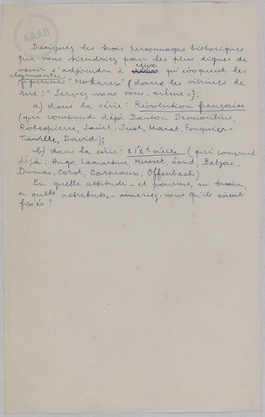 AAAB
Désignez les trois personnages historiques
que vous tiendriez pour les plus dignes de
venir s'adjoindre à ceux qui évoquent les
charmantes figurines "Mokarex" (dans les vitrines de
rue: "Servez-vous vous-même"):
a) dans la série: Révolution française
(qui comprend déjà Danton, Desmoulins,
Robespierre, Saint-Just, Marat, Fouquier-
Tinville, David);
b) dans la série: XIXe siècle (qui comprend
déjà: Hugo, Lamartine, Musset, Sand, Balzac,
Dumas, Corot, Carpeaux, Offenbach)
En quelle attitude – et pourvus, au besoin,
de quels attributs – aimeriez-vous qu'ils soient
fixés?